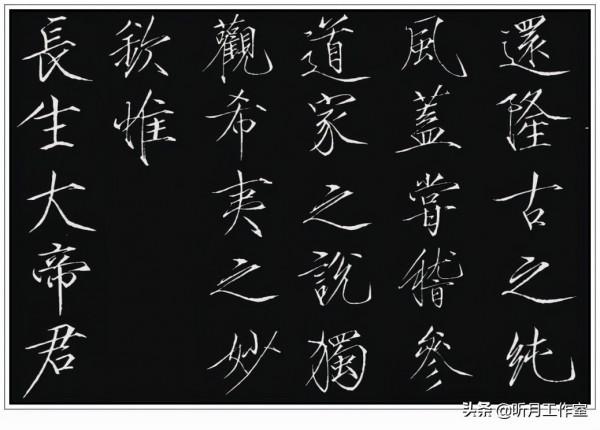 還隆古之純
風蓋嘗稽參
道家之說獨
觀希夷之妙
欽惟
長生大帝君
头条 @听月工作室